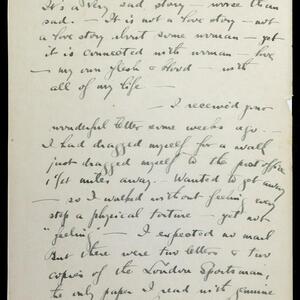 It's a very sad story — worse than
sad. — It is not a love story — not
a love story about some woman — yet
it is connected with woman — love
— my own flesh & blood — with
all of my life —
— I received your
wonderful letter some weeks ago.
I had dragged myself for a walk
just dragged myself to the post office
1½ miles away. Wanted to get away
— so I walked without feeling every
step a physical torture — yet not
"feeling" — I expected no mail
But there were two letters & two
copies of the London Sportsman,
the only paper I read with genuine